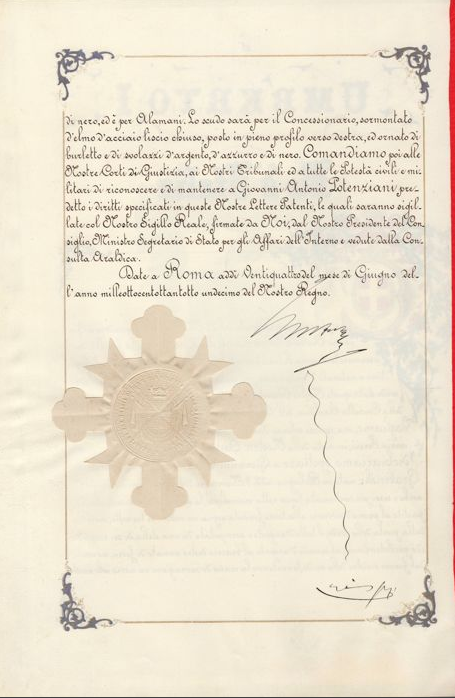 di nero, ed è per Alamani. Lo scudo sarà per il Concessionario, sormontato
d'elmo d'acciaio liscio chiuso, posto in pieno profilo verso destra, ed ornato di
burletto e di svolazzi d'argento, d'azzurro e di nero. Comandiamo poi alle
Nostre Corti di Giustizia, ai Nostri Tribunali ed a tutte le Potestà civili e mi-
litari di riconoscere e di mantenere a Giovanni Antonio Potenziani pre-
detto i diritti specificati in queste Nostre Lettere Patenti, le quali saranno sigil-
late col Nostro Sigillo Reale, firmate da Noi, dal Nostro Presidente del Con-
siglio, Ministro Segretario di Stato per gli Affari dell'Interno e vedute dalla Con-
sulta Araldica.
Date a Roma addì Ventiquattro del mese di Giugno del-
l'anno milleottocentottantotto undecimo del Nostro Regno.